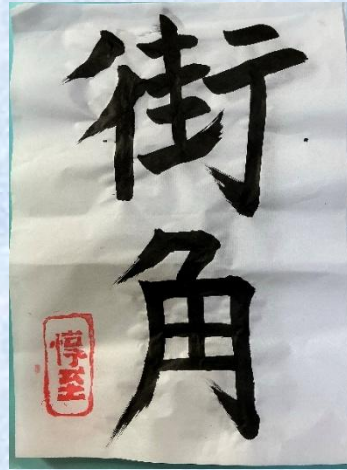 街角
惇至